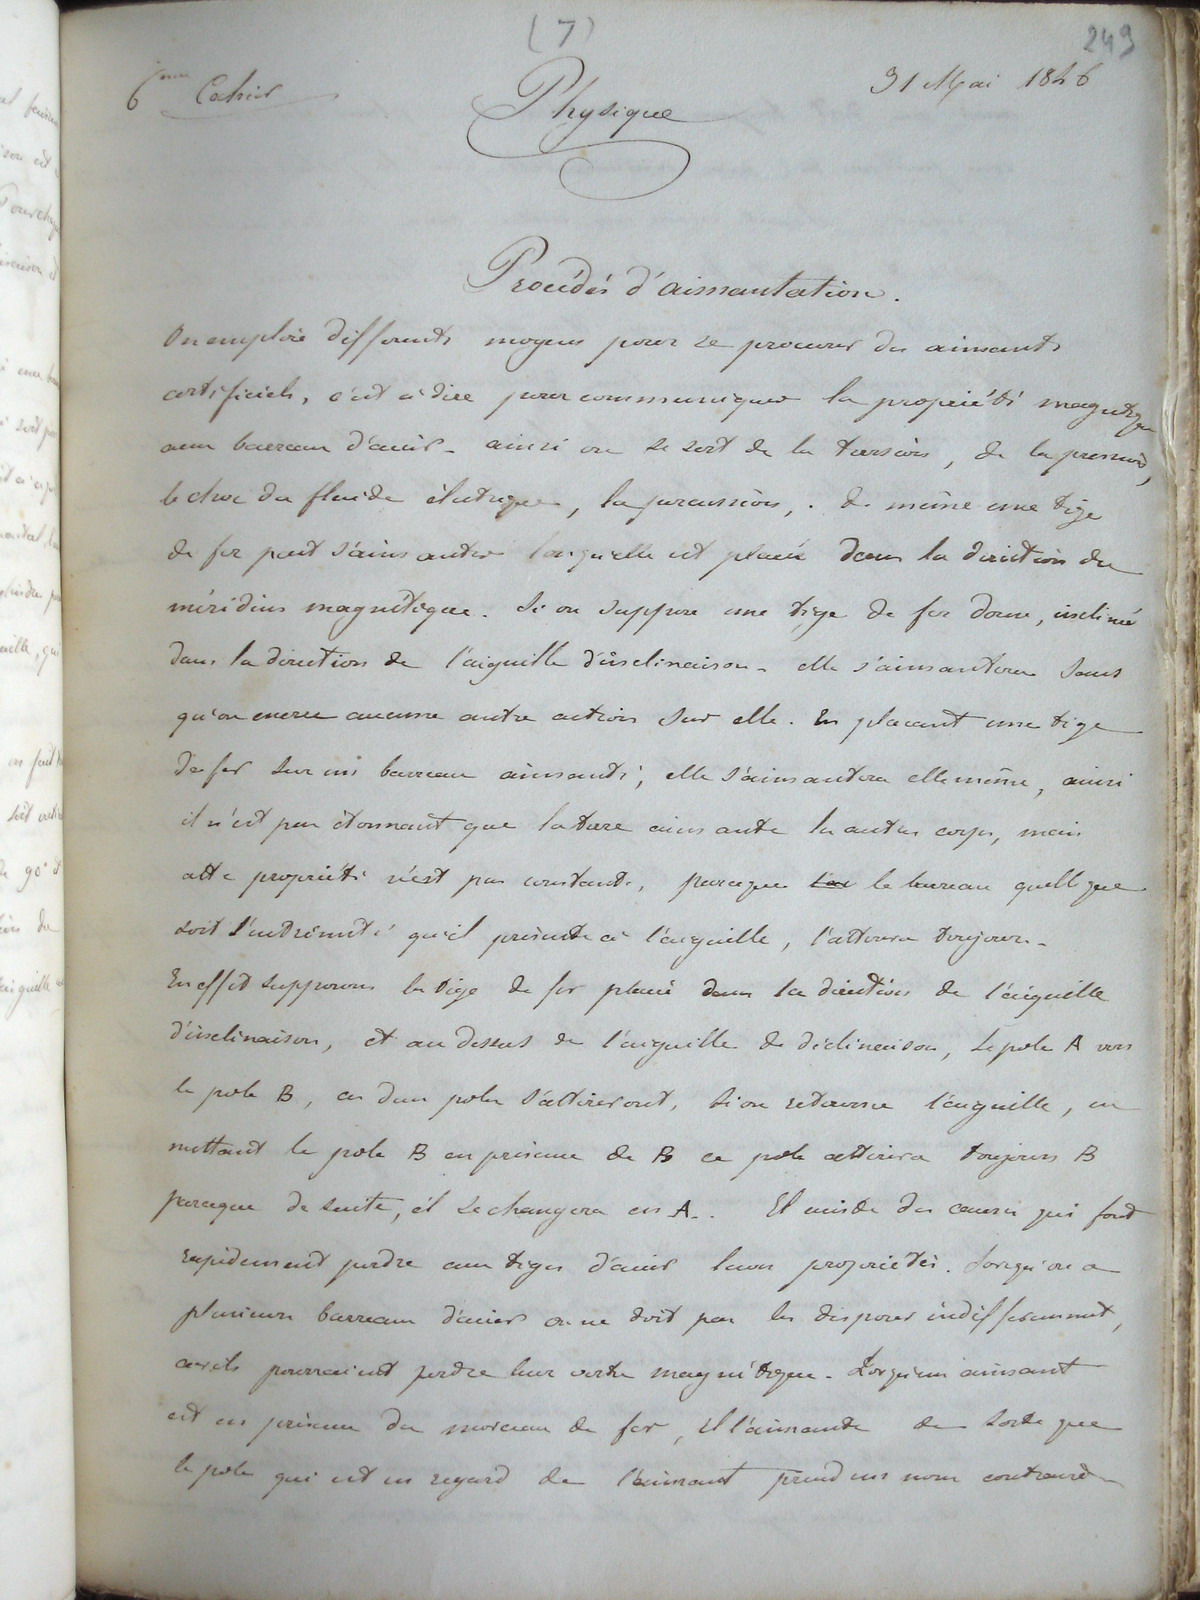 (7)
249
6me Cahier
Physique
31 Mai 1846
Procédés d'aimantation.
On emploie differents moyens pour se procurer des aimants
artificiels, c'est à dire pour communiquer la propriété magnétique
aux barreaux d'acier. ainsi on se sert de la torsion, de la pression,
le choc du fluide électrique, la percussion, . de même une tige
de fer peut s'aimanter lorsqu'elle est placée dans la direction du
méridien magnétique. Si on suppose une tige de fer doux, inclinée
dans la direction de l'aiguille d'inclinaison. elle s'aimantera sans
qu'on exerce aucune autre action sur elle. En placant une tige
de fer sur un barreau aimanté, elle s'aimantera elle même, ainsi
il n'est pas étonnant que la terre aimante les autres corps, mais
cette propriété n'est pas constante, parceque le barreau quelle que
soit l'extrémité qu'il présente à l'aiguille, l'attirera toujours.
En effet supposons la tige de fer placée dans la direction de l'aiguille
d'inclinaison, et au dessus de l'aiguille de déclinaison, le pole A vers
le pole B, ces deux poles s'attireront. Si on retourne l'aiguille, en
mettant le pole B en présence de B ce pole attirera toujours B
parceque de suite, il se changera en A. Il existe des causes qui font
rapidement perdre aux tiges d'acier leurs propriétés. Lorsqu'on a
plusieurs barreaux d'acier on ne doit pas les disposer indifferamment,
car ils pourraient perdre leur vertu magnétique. Lorsqu'un aimant
est en présence du morceau de fer, il l'aimante de sorte que
le pole qui est en regard de l'aimant prend un nom contraire